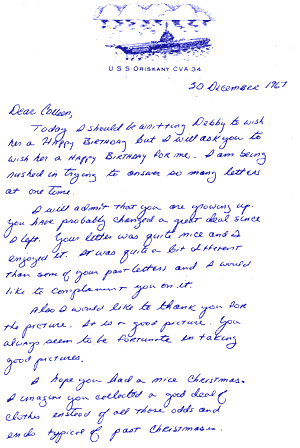 USS ORISKANY CVA-34
30 December 1967
Dear Colleen,
Today I should be writting Debby to wish
her a Happy Birthday but I will ask you to
wish her a Happy Birthday for me. I am being
rushed in trying to answer so many letters
at one time.
I will admit that you are growing up.
You have probably changed a great deal since
I left. Your letter was quite nice and I
enjoyed it. It was quite a bit different
than some of your past letters and I would
like to complament you on it.
Also I would like to thank you for
the picture. It is a good picture. You
always seem to be fortunate in taking
good pictures.
I hope you had a nice Christmas.
I imagine you collected a good deal of
clothes instead of all those odds and
ends typical of past Christmases.